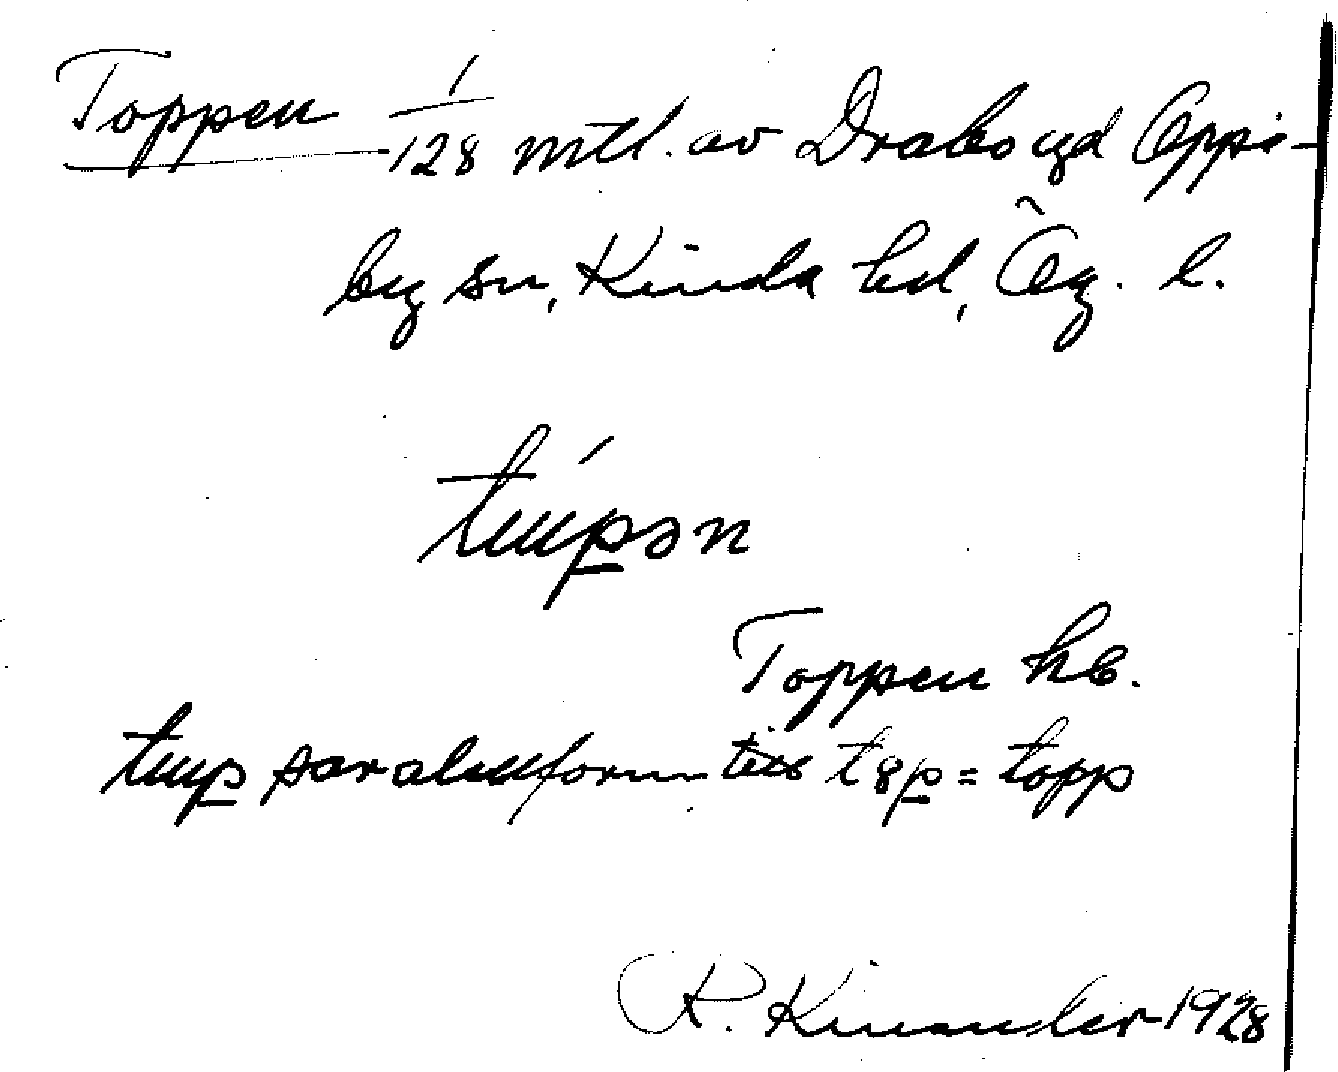 Toppen 1/128 mtl. av Drabo yd Oppe-
by sn, Kinda hd, Ög. l.
tuṕən
Toppen hb.
tup parallellform till top = topp
R. Kinander 1928